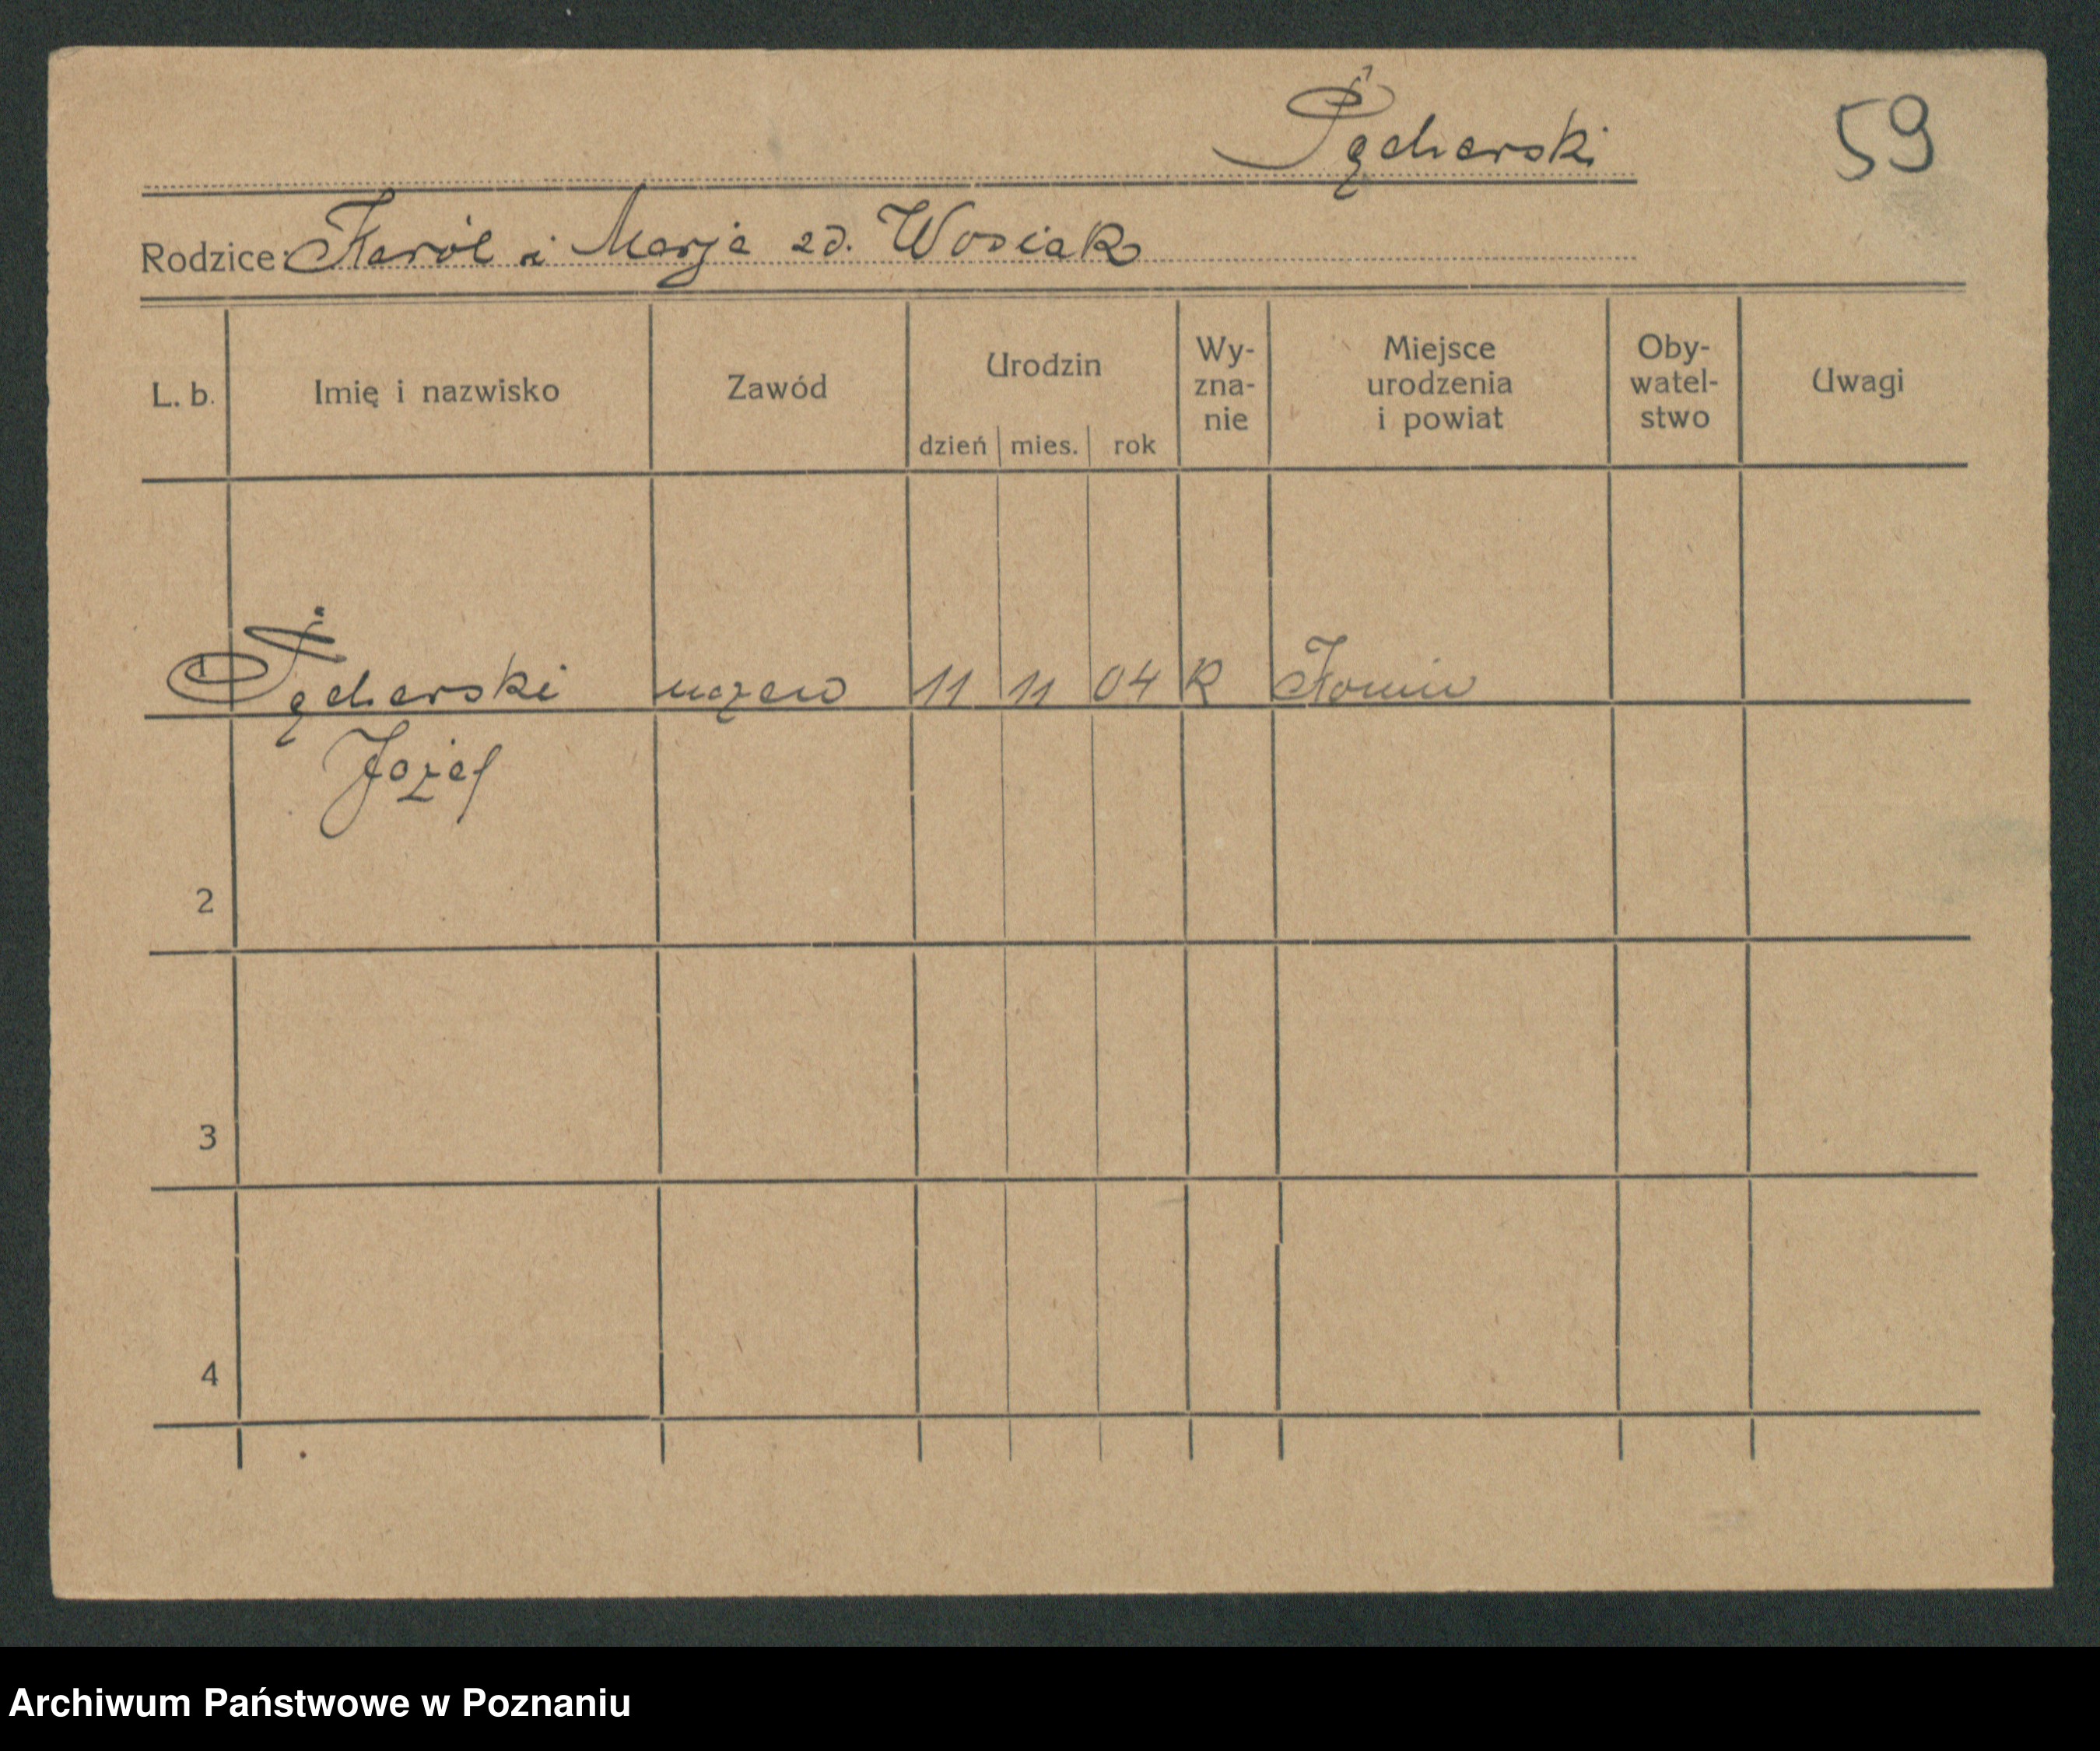 Pęcherski
59
Rodzice: Karól i Marja zd. Wosiak
L. b.
Imię i nazwisko
Zawód
Urodzin
dzień mies. rok
Wy-
zna-
nie
Miejsce
urodzenia
i powiat
Oby-
watel-
stwo
Uwagi
Pęcherski 11 11 04 R
Józef
2
3
4
Archiwum Państwowe w Poznaniu